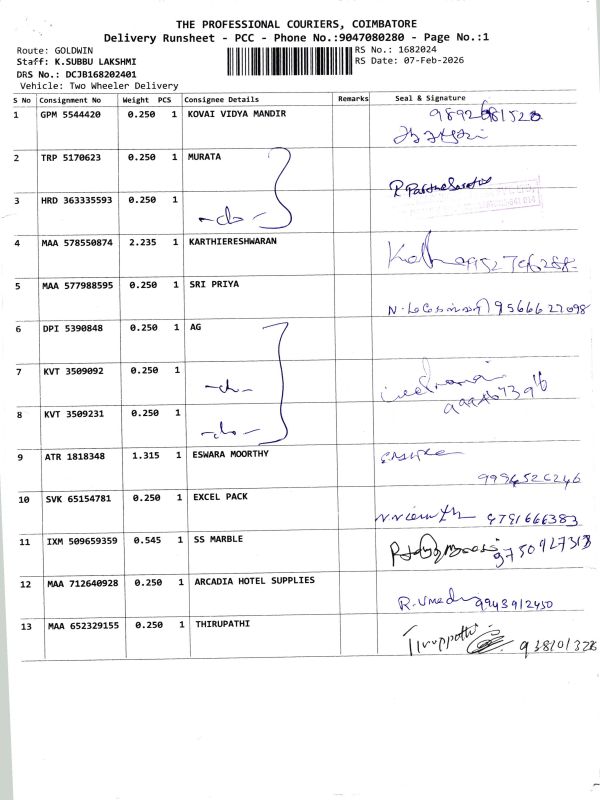 THE PROFESSIONAL COURIERS, COIMBATORE
Delivery Runsheet - PCC - Phone No.:9047080280 - Page No.:1
Route: GOLDWIN
Staff: K.SUBBU LAKSHMI
DRS No.: DCJB168202401
Vehicle: Two Wheeler Delivery
RS No.: 1682024
RS Date: 07-Feb-2026
S No Consignment No Weight PCS Consignee Details Remarks Seal & Signature
1 GPM 5544420 0.250 1 KOVAI VIDYA MANDIR
2 TRP 5170623 0.250 1 MURATA
3 HRD 363335593 0.250 1 -do-
4 MAA 578550874 2.235 1 KARTHIERESHWARAN
5 MAA 577988595 0.250 1 SRI PRIYA 9566627098
6 DPI 5390848 0.250 1 AG
7 KVT 3509092 0.250 1 -do-
8 KVT 3509231 0.250 1 -do-
9 ATR 1818348 1.315 1 ESWARA MOORTHY
9994526246
10 SVK 65154781 0.250 1 EXCEL PACK
9791666383
11 IXM 509659359 0.545 1 SS MARBLE
12 MAA 712640928 0.250 1 ARCADIA HOTEL SUPPLIES
R.Umedu 9943912450
13 MAA 652329155 0.250 1 THIRUPATHI
Tiruppathi